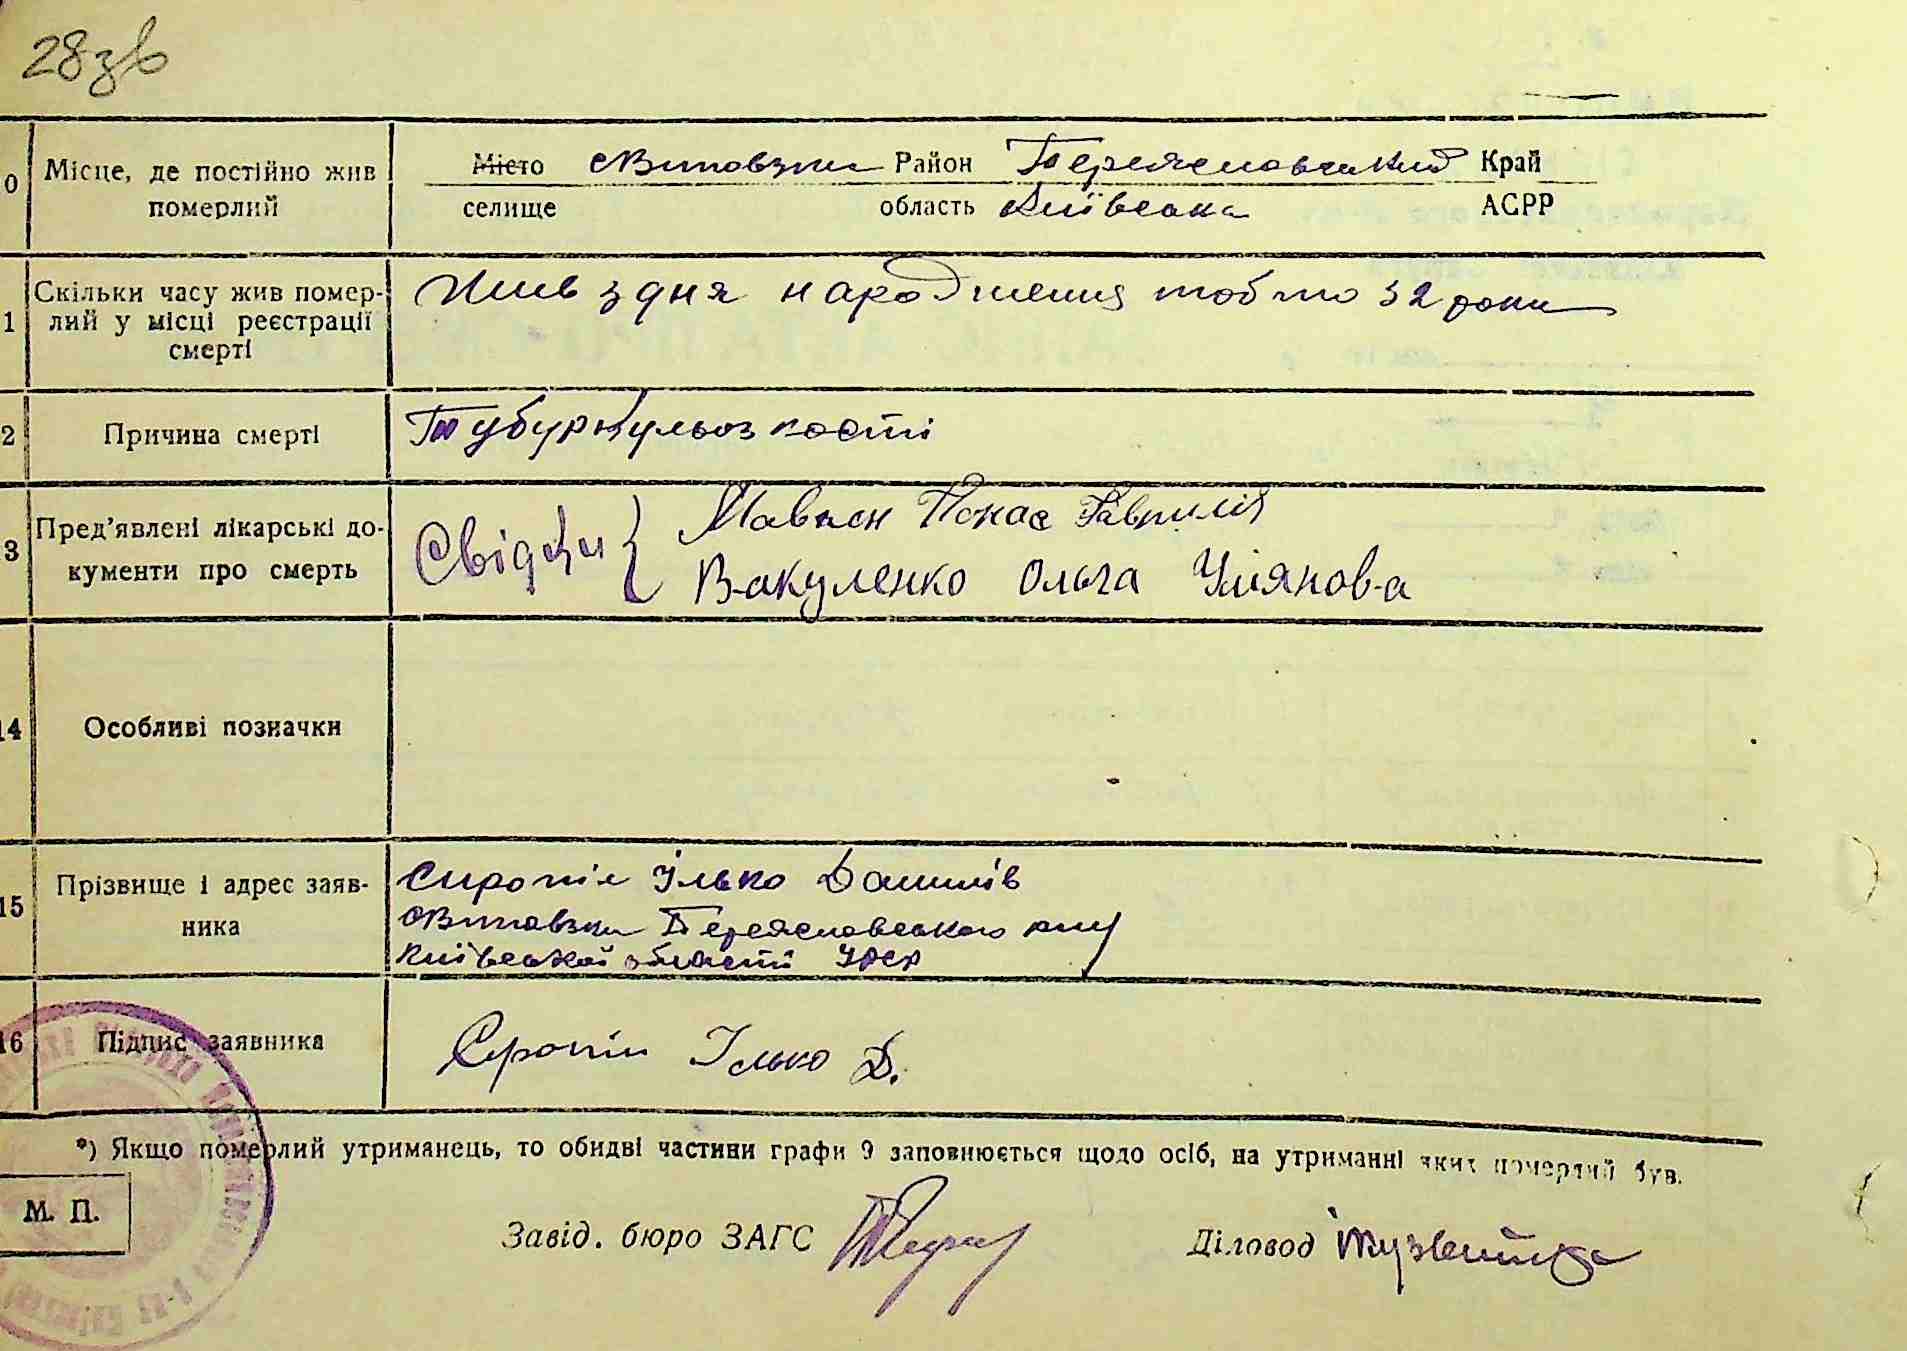 28зв
0 Місце, де постійно жив померлий
Місто с Виповзки Район Переяславський Край
селище область Київська АСРР
1 Скільки часу жив померлий у місці реєстрації смерті
Жив з дня народження тобто 32 роки
2 Причина смерті
Тубуркульоз кості
3 Пред'явлені лікарські документи про смерть
Свідки { Панас
Вакуленко Ольга Улянова
14 Особливі позначки
15 Прізвище і адрес заявника
Сиропін Ілько Данилів
с Виповзки Переяславського р-ну
Київської області УРСР
16 Підпис заявника
Ілько Д.
*) Якщо померлий утриманець, то обидві частини графи 9 заповнюється щодо осіб, на утриманні яких померлий був.
М. П.
Завід. бюро ЗАГС
Діловод